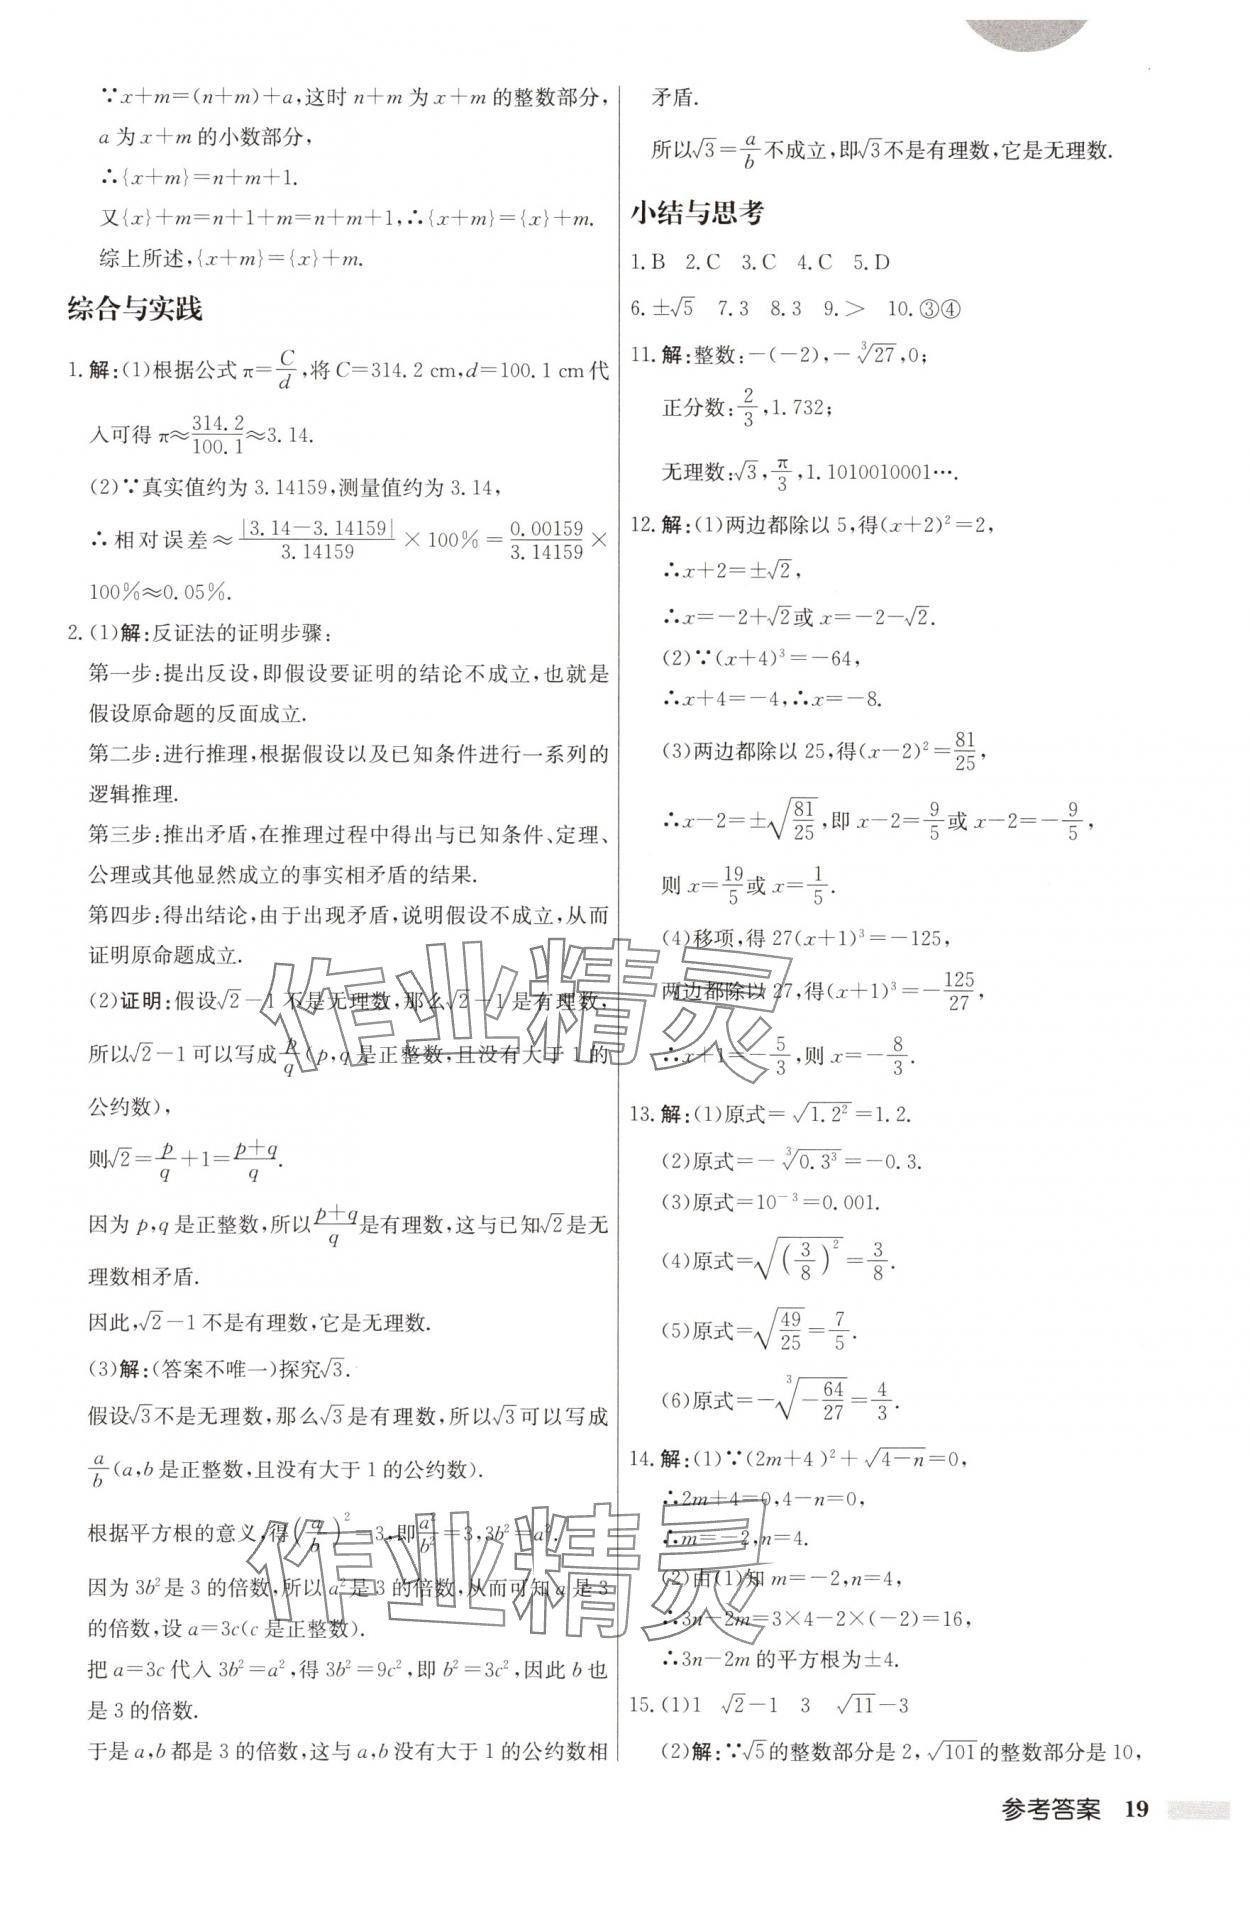 ∵x+m=(n+m)+a,这时 n+m 为 x+m 的整数部分,
a 为 x+m 的小数部分,
∴{x+m}=n+m+1.
又{x}+m=n+1+m=n+m+1,∴{x+m}={x}+m.
综上所述,{x+m}={x}+m.
综合与实践
1.解:(1)根据公式 π=C/d,将 C=314.2 cm,d=100.1 cm代
入可得 π≈314.2/100.1≈3.14.
(2)∵真实值约为 3.14159,测量值约为 3.14,
∴相对误差≈|3.14-3.14159|/3.14159×100%=0.00159/3.14159×
100%≈0.05%.
2.(1)解:反证法的证明步骤:
第一步:提出反设,即假设要证明的结论不成立,也就是
假设原命题的反面成立.
第二步:进行推理,根据假设以及已知条件进行一系列的
逻辑推理.
第三步:推出矛盾,在推理过程中得出与已知条件、定理、
公理或其他显然成立的事实相矛盾的结果.
第四步:得出结论,由于出现矛盾,说明假设不成立,从而
证明原命题成立.
(2)证明:假设√2-1 不是无理数,那么√2-1 是有理数,
所以√2-1 可以写成p/q(p,q 是正整数,且没有大于 1 的
公约数),
则√2=p/q+1=(p+q)/q.
因为 p,q 是正整数,所以(p+q)/q是有理数,这与已知√2是无
理数相矛盾.
因此,√2-1 不是有理数,它是无理数.
(3)解:(答案不唯一)探究√3.
假设√3不是无理数,那么√3是有理数,所以√3可以写成
a/b(a,b 是正整数,且没有大于 1 的公约数).
根据平方根的意义,得(a/b)²=3,即a²/b²=3,3b²=a².
因为 3b²是 3 的倍数,所以 a²是 3 的倍数,从而可知 a 是 3
的倍数,设 a=3c(c 是正整数).
把 a=3c 代入 3b²=a²,得 3b²=9c²,即 b²=3c²,因此 b 也
是 3 的倍数.
于是 a,b 都是 3 的倍数,这与 a,b 没有大于 1 的公约数相
矛盾.
所以√3=a/b不成立,即√3不是有理数,它是无理数.
小结与思考
1.B 2.C 3.C 4.C 5.D
6.±√5 7.3 8.3 9.> 10.③④
11.解:整数:-(-2),-³√27,0;
正分数:2/3,1.732;
无理数:√3,π/3,1.1010010001….
12.解:(1)两边都除以 5,得(x+2)²=2,
∴x+2=±√2,
∴x=-2+√2或 x=-2-√2.
(2)∵(x+4)³=-64,
∴x+4=-4,∴x=-8.
(3)两边都除以 25,得(x-2)²=81/25,
∴x-2=±√(81/25),即 x-2=9/5或 x-2=-9/5,
则 x=19/5或 x=1/5.
(4)移项,得 27(x+1)³=-125,
两边都除以 27,得(x+1)³=-125/27,
∴x+1=-5/3,则 x=-8/3.
13.解:(1)原式=√(1.2²)=1.2.
(2)原式=-³√(0.3³)=-0.3.
(3)原式=10⁻³=0.001.
(4)原式=√((3/8)²)=3/8.
(5)原式=√(49/25)=7/5.
(6)原式=-³√(-64/27)=4/3.
14.解:(1)∵(2m+4)²+√(4-n)=0,
∴2m+4=0,4-n=0,
∴m=-2,n=4.
(2)由(1)知 m=-2,n=4,
∴3n-2m=3×4-2×(-2)=16,
∴3n-2m 的平方根为±4.
15.(1)1 √2-1 3 √11-3
(2)解:∵√5的整数部分是 2,√101的整数部分是 10,
参考答案 19
作业精灵
作业精灵